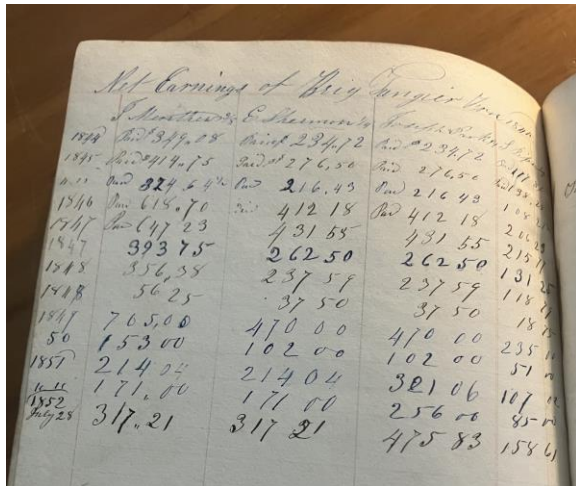 Net Earnings of Brig Tangier
E. Sherman Joseph
1844 Paid $349.08 Paid $ 234,72 Paid $ 234,72
1845 Paid $ 414,75 Paid $ 276,50 Paid 276,50
Paid 324,64½ Paid 216,43 Paid 216 43
1846 Paid 618,70 Paid 412 18 Paid 412 18
1847 Paid 647 23 431 55 431 55
1847 393 75 262 50 262 50 131 25
1848 356,38 237 59 237 59 118
1848 56 25 37 50 37 50 18 75
1849 705,00 470 00 470 00 235
50 153 00 102 00 102 00 51 00
1851 214 04 214 04 321 06 107 02
" " 171,00 171 00 256 00 85 00
1852
July 28 317.21 317 21 475 83 158 61